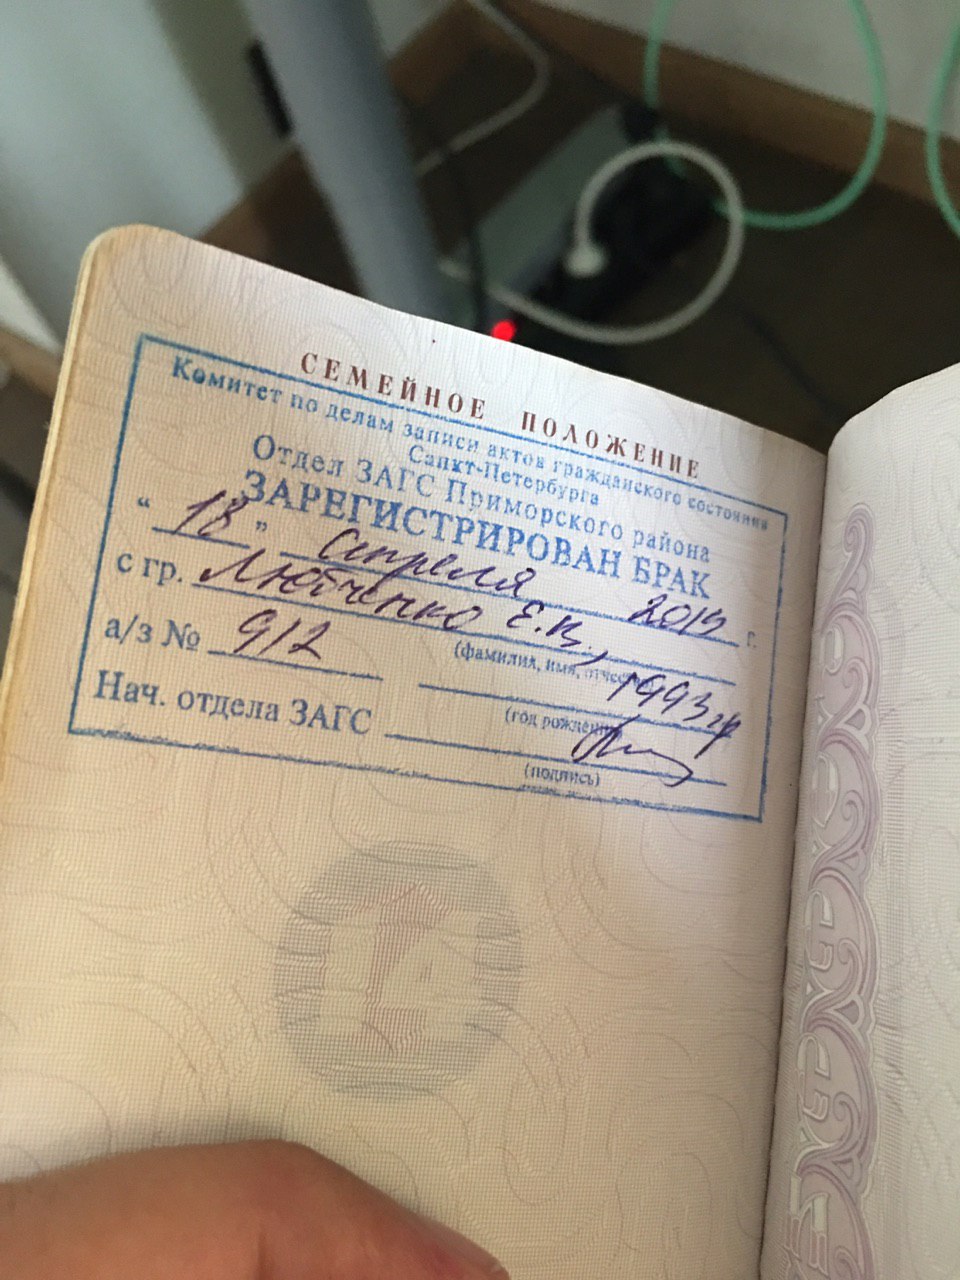 СЕМЕЙНОЕ ПОЛОЖЕНИЕ
Комитет по делам записи актов гражданского состояния
Санкт-Петербурга
Отдел ЗАГС Приморского района
ЗАРЕГИСТРИРОВАН БРАК
“ 18 ” апреля 2015 г.
с гр. Любченко Е.В.,
(фамилия, имя, отчество)
а/з № 912 1993 гр
(год рождения)
Нач. отдела ЗАГС
(подпись)
14